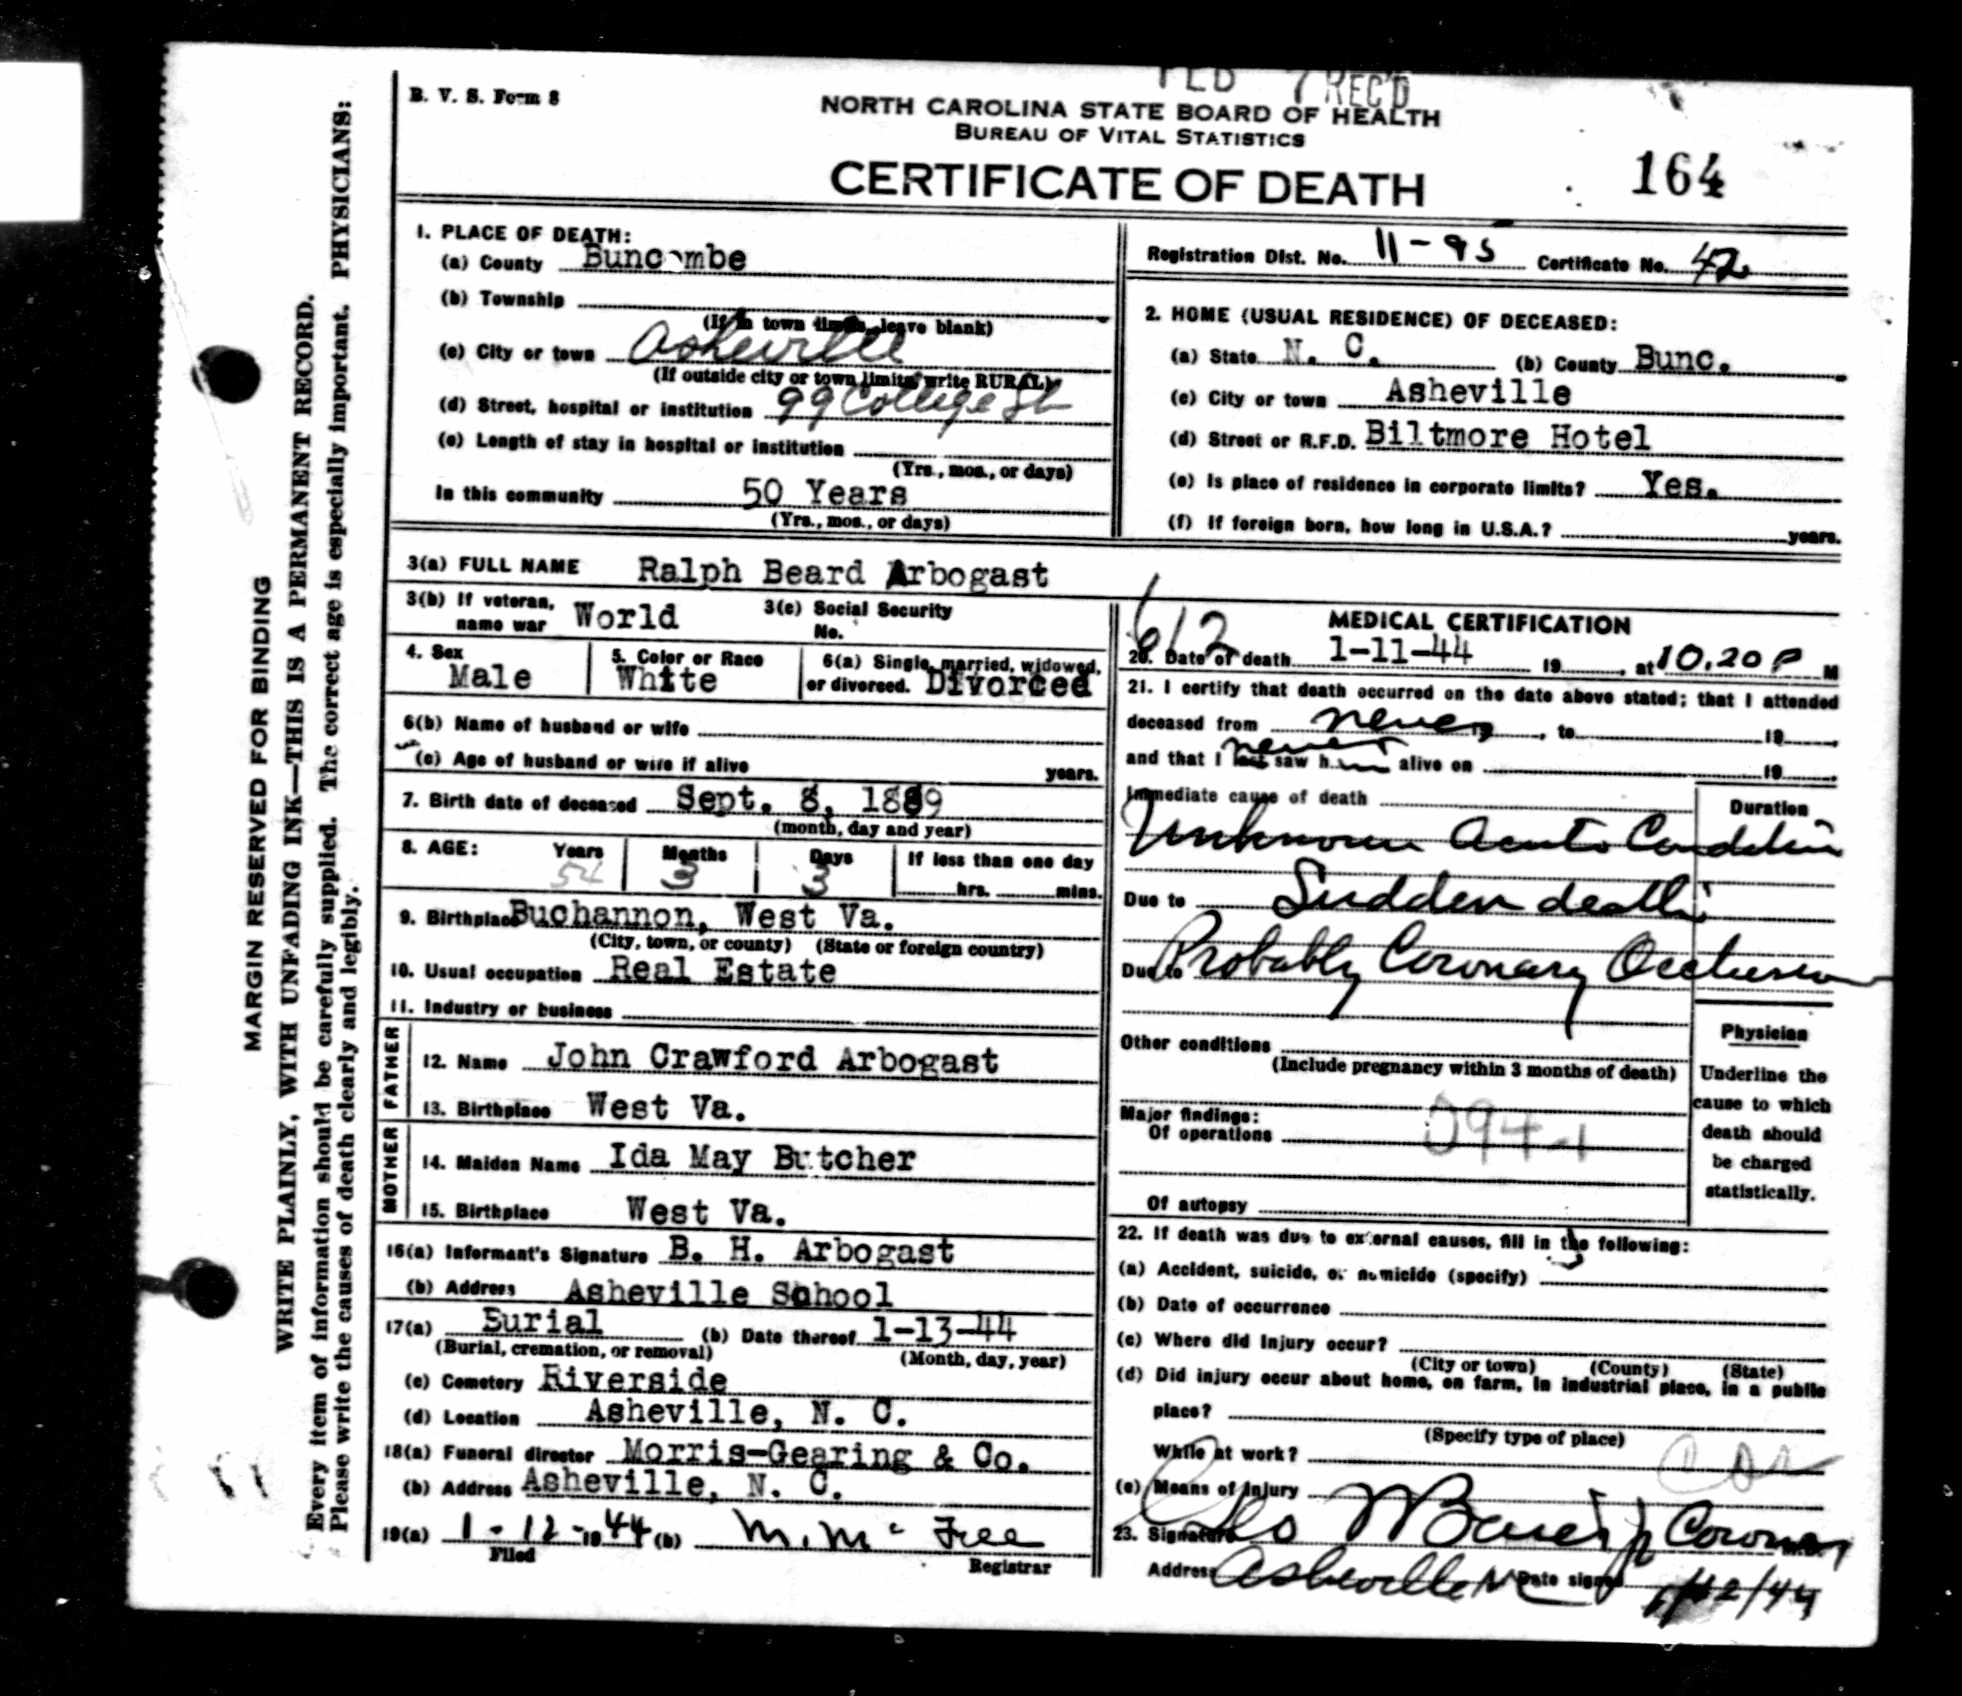 FEB 7 REC'D
B. V. S. Form 8
NORTH CAROLINA STATE BOARD OF HEALTH
BUREAU OF VITAL STATISTICS
CERTIFICATE OF DEATH
164
MARGIN RESERVED FOR BINDING
WRITE PLAINLY, WITH UNFADING INK—THIS IS A PERMANENT RECORD.
Every item of information should be carefully supplied. The correct age is especially important. PHYSICIANS:
Please write the causes of death clearly and legibly.
1. PLACE OF DEATH:
(a) County Buncombe
(b) Township
(If in town limits, leave blank)
(c) City or town Asheville
(If outside city or town limits, write RURAL)
(d) Street, hospital or institution 99 College St
(e) Length of stay in hospital or institution
(Yrs., mos., or days)
In this community 50 Years
(Yrs., mos., or days)
Registration Dist. No. 11-95 Certificate No. 42
2. HOME (USUAL RESIDENCE) OF DECEASED:
(a) State N. C. (b) County Bunc.
(c) City or town Asheville
(d) Street or R.F.D. Biltmore Hotel
(e) Is place of residence in corporate limits? Yes.
(f) If foreign born, how long in U.S.A.? years.
3(a) FULL NAME Ralph Beard Arbogast
3(b) If veteran, name war World 3(c) Social Security No.
4. Sex Male 5. Color or Race White 6(a) Single, married, widowed, or divorced. Divorced
6(b) Name of husband or wife
(c) Age of husband or wife if alive years.
7. Birth date of deceased Sept. 8, 1889
(month, day and year)
8. AGE: Years 54 Months 3 Days 3 If less than one day
hrs. mins.
9. Birthplace Buchannon, West Va.
(City, town, or county) (State or foreign country)
10. Usual occupation Real Estate
11. Industry or business
FATHER
12. Name John Crawford Arbogast
13. Birthplace West Va.
MOTHER
14. Maiden Name Ida May Butcher
15. Birthplace West Va.
16(a) Informant's Signature B. H. Arbogast
(b) Address Asheville School
17(a) Burial (b) Date thereof 1-13-44
(Burial, cremation, or removal) (Month, day, year)
(c) Cemetery Riverside
(d) Location Asheville, N. C.
18(a) Funeral director Morris-Gearing & Co.
(b) Address Asheville, N. C.
19(a) 1-12-1944 (b) M. Mc Fee
Filed Registrar
612
MEDICAL CERTIFICATION
20. Date of death 1-11-44 19 , at 10.20 P M
21. I certify that death occurred on the date above stated; that I attended
deceased from never 19 , to 19 ,
never
and that I last saw h alive on 19 .
Immediate cause of death Duration
Unknown Acute Condition
Due to Sudden death
Due to Probably Coronary Occlusion
Other conditions
(Include pregnancy within 3 months of death)
Major findings:
Of operations
094-1
Of autopsy
Physician
Underline the
cause to which
death should
be charged
statistically.
22. If death was due to external causes, fill in the following:
(a) Accident, suicide, or homicide (specify)
(b) Date of occurrence
(c) Where did injury occur?
(City or town) (County) (State)
(d) Did injury occur about home, on farm, in industrial place, in a public
place?
(Specify type of place)
While at work?
(e) Means of injury
23. Signature Coroner
Address Asheville NC Date signed 1/12/44